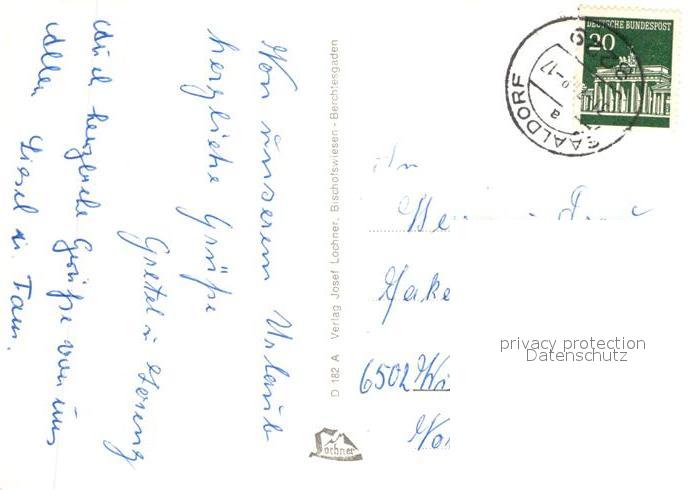 Von unserem Urlaub
herzliche Grüße
Gretel u.
Auch herzliche Grüße von uns
Allen
Liesel u. Fam.
D 182 A Verlag Josef Lochner, Bischofswiesen - Berchtesgaden
Lochner
DEUTSCHE BUNDESPOST
20
SAALDORF
a
An
6502
privacy protection
Datenschutz